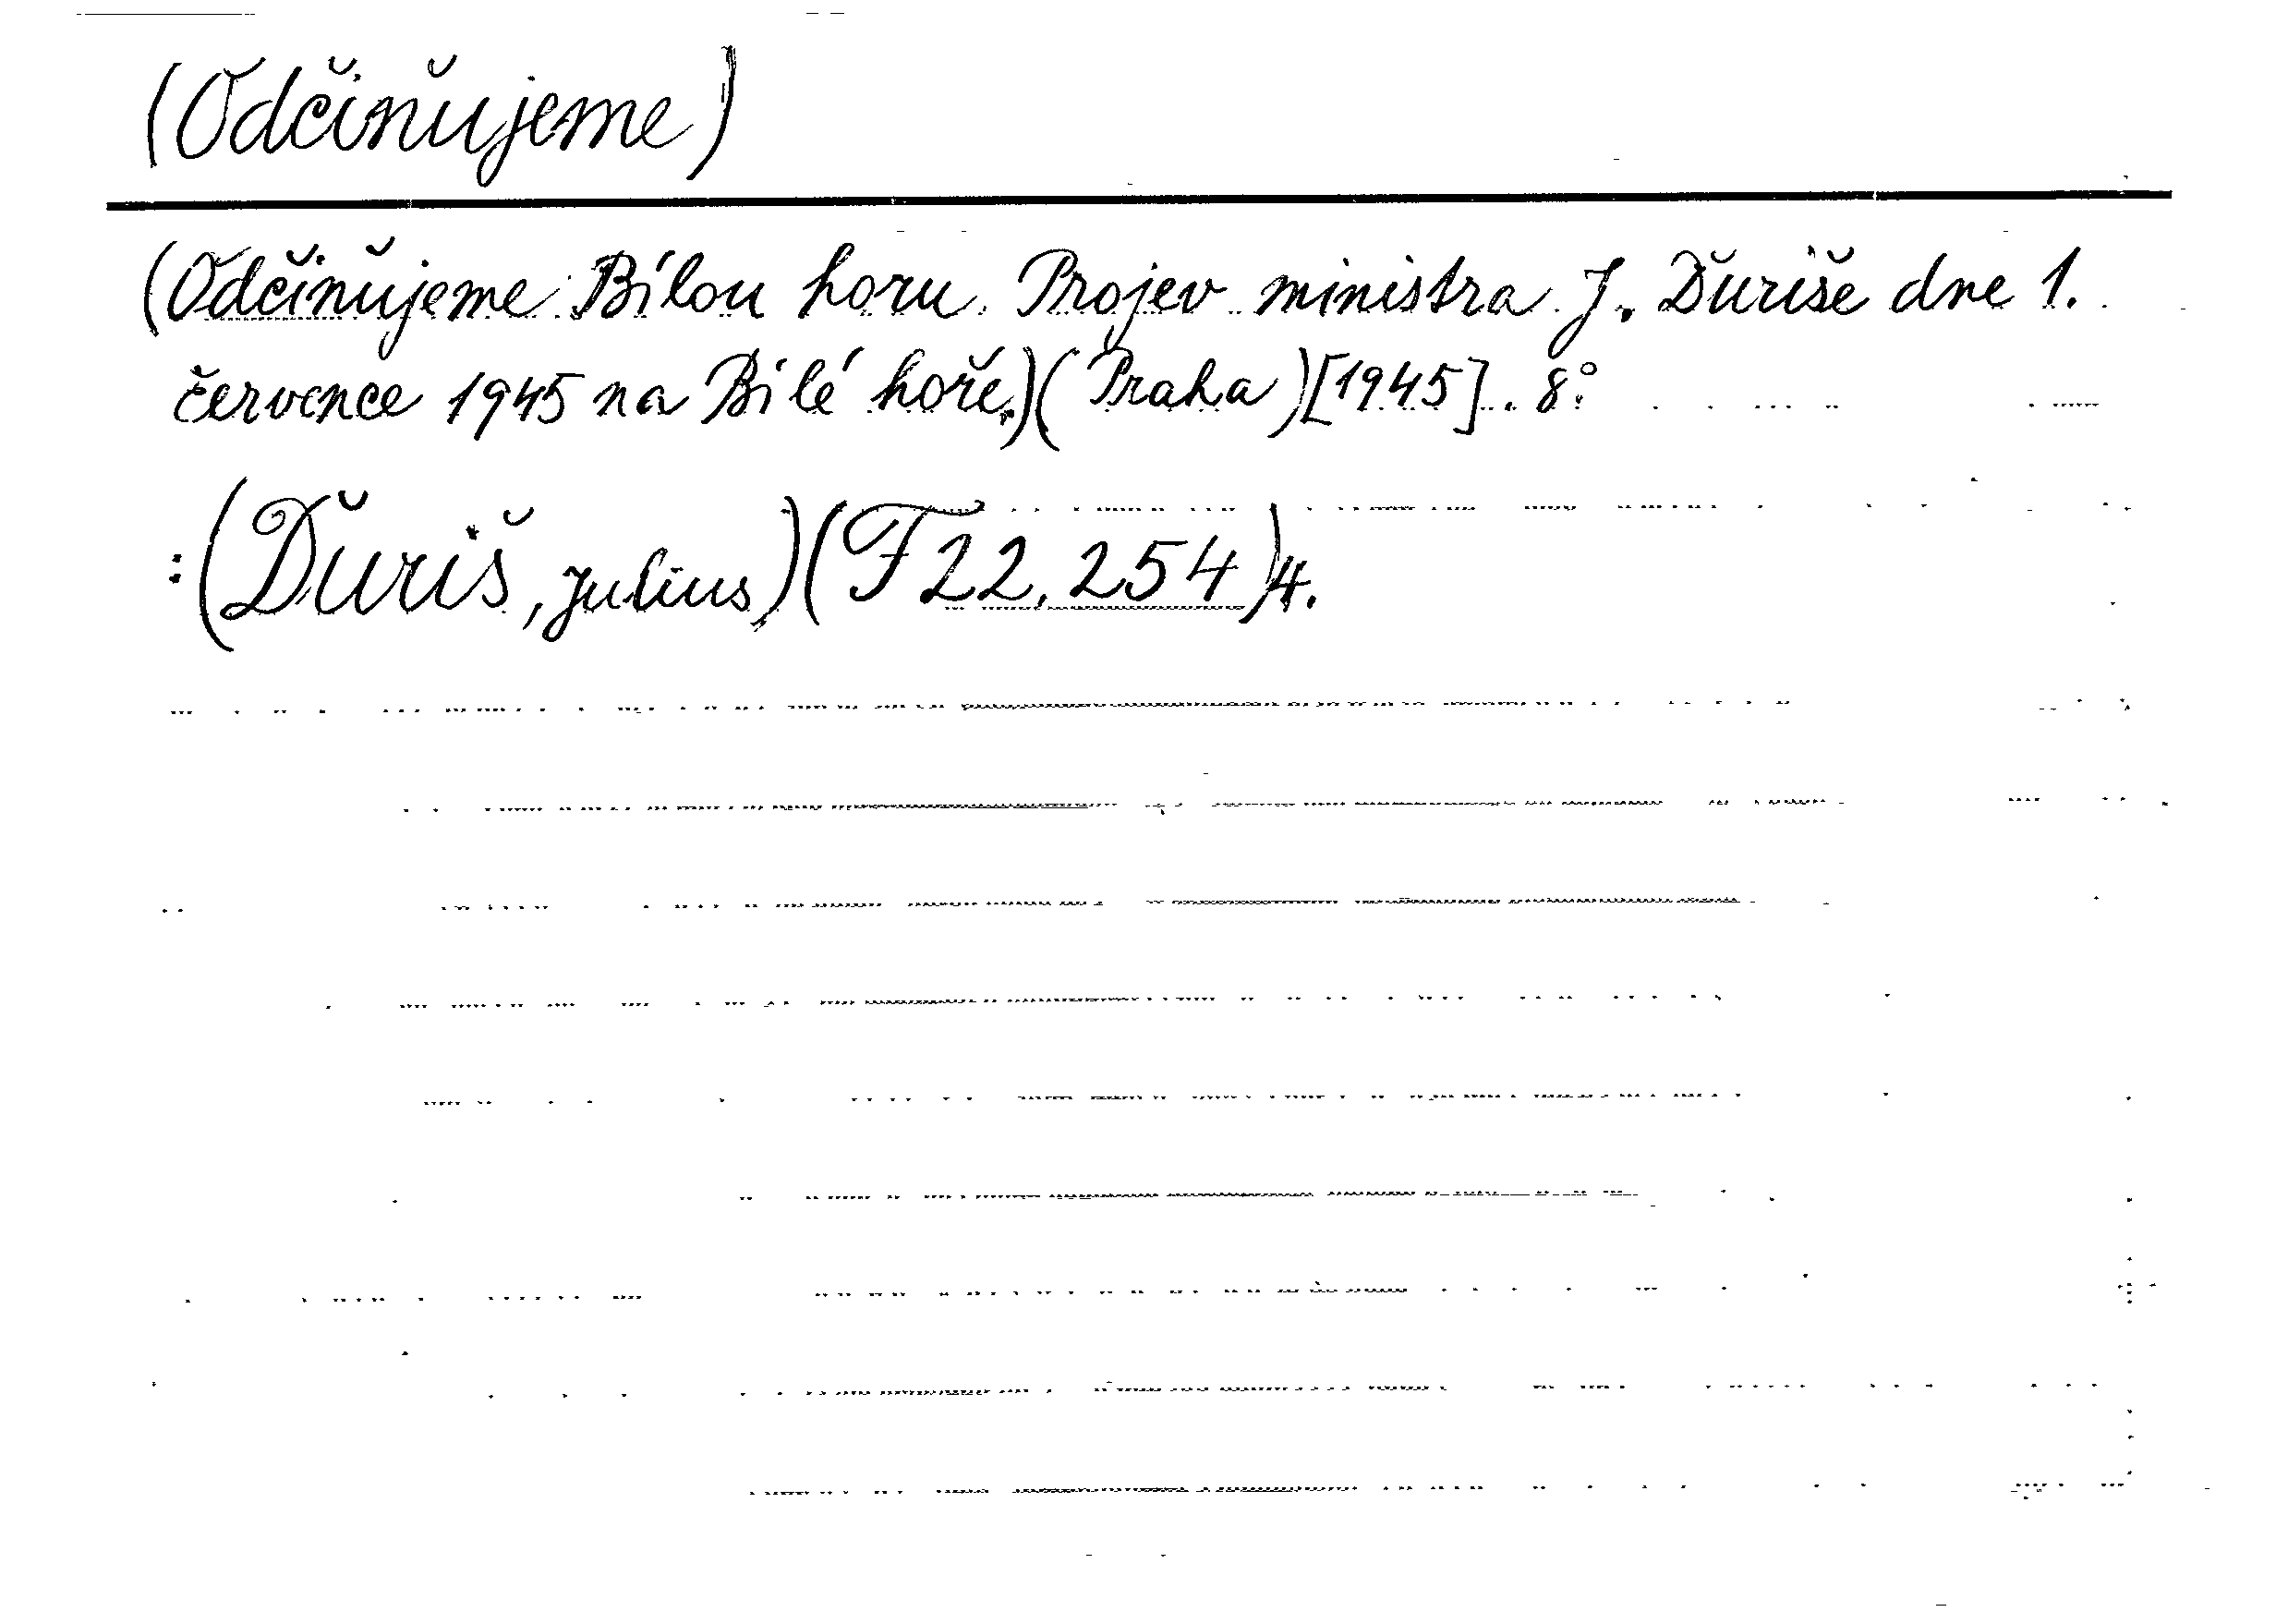 (Odčiňujeme)
(Odčiňujeme Bílou horu. Projev ministra J. Ďuriše dne 1.
července 1945 na Bílé hoře.)(Praha)[1945]. 8°.
:(Ďuriš, Julius)(F 22, 254)4.